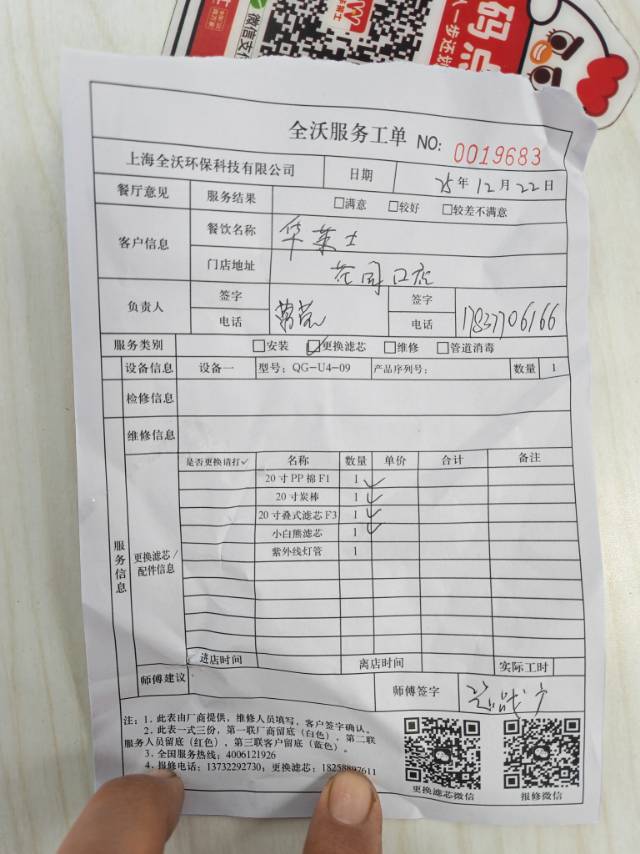 微信支付
码点
一步还
全沃服务工单 NO: 0019683
上海全沃环保科技有限公司 日期 25年12月22日
餐厅意见 服务结果 □满意 □较好 □较差不满意
客户信息 餐饮名称 华莱士
门店地址 花园口店
负责人 签字 签字
电话 电话 17837706166
服务类别 □安装 ☑更换滤芯 □维修 □管道消毒
设备信息 设备一 型号: QG-U4-09 产品序列号: 数量 1
检修信息
维修信息
服务信息
更换滤芯/配件信息
是否更换请打✓ 名称 数量 单价 合计 备注
20寸PP棉F1 1 ✓
20寸炭棒 1 ✓
20寸叠式滤芯F3 1 ✓
小白熊滤芯 1 ✓
紫外线灯管 1
进店时间 离店时间 实际工时
师傅建议 师傅签字
注: 1、此表由厂商提供, 维修人员填写, 客户签字确认。
2、此表一式三份, 第一联厂商留底 (白色), 第二联
服务人员留底 (红色), 第三联客户留底 (蓝色)。
3、全国服务热线: 4006121926
4、报修电话: 13732292730; 更换滤芯: 18258897611
更换滤芯微信 报修微信